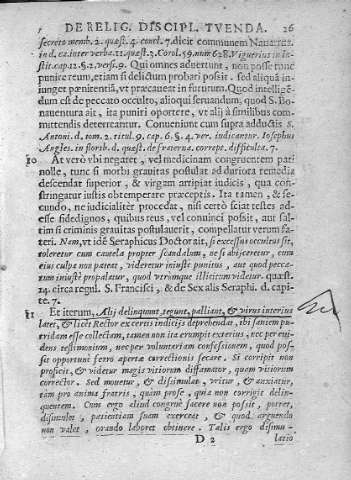 DE RELIG. DISCIPL. TVENDA. 26
secreto memb. 2. quæst. 4. concl. 7. dicit communem Nauarrus
in d. ca. inter verba. 11. quæst. 3. Corol. 59. num 628. Viguerius in In-
stit. cap. 12. §. 2. vers. 9. Qui omnes aduertunt, non posse tunc
punire reum, etiam si delictum probari possit, sed aliquà in-
iunget pœnitentiã, vt præcaueat in futurum. Quod intelligé-
dum est de peccato occulto, alioqui seruandum, quod S. Bo-
nauentura ait, ita puniri oportere, vt alij à similibus com-
mittendis deterreantur. Conueniunt cum supra adductis S.
Antoni. d. tom. 2. titul. 9. cap. 6. §. 4. ver. indicantur. Iosephus
Angles. in florib. d. quæst. de fraterna. corrept. difficulta. 7.
10 At verò vbi negaret, vel medicinam congruentem pati
nollet, tunc si morbi grauitas postulat ad duriora remedia
descendat superior, & virgam arripiat iudicis, qua con-
stringatur iustis obtemperare præceptis. Ita tamen, & se-
cundo, ne iudicialitèr procedat, nisi certò sciat testes ad-
esse fidedignos, quibus reus, vel conuinci possit, aut sal-
tim si criminis grauitas postulauerit, compellatur verum fa-
teri. Nam, vt idé Seraphicus Doctor ait, si excessus occulens sit,
toleretur cum cautela propter scandalum, ne si abijceretur, cum
eius culpa non pateat, videretur iniustè punitus, aut quod pecca-
tum iniustè propalatur, quod vtrùmque illicitum videtur. quæst.
24. circa regul. S. Francisci, & de Sex alis Seraphi. d. capi-
te. 7.
11 Et iterum, Alij delinquunt, segunt, palliant, & virus interius
latet, & licèt Rector ex certis indicijs deprehendat, ibi saniem pu-
tridam esse collectam, tamen non ita erumpit exterius, nec per eui-
dens testimonium, nec per voluntariam confessionem, quod pos-
sit opportunè ferro apertæ correctionis secare. Si corripit non
proficit, & videtur magis vitiorum diffamator, quàm vitiorum
corrector. Sed mouetur, & dissimulat, vritur, & anxiatur,
tam pro anima fratris, quàm prose, quia non corrigit delin-
quentem. Cùm ergo aliud congruè facere non possit, potest,
dissimulet, patientiam suam exerceat, & quod arguendo
non valet, orando laboret obtinere. Talis ergo dissimu-
D 2 latio